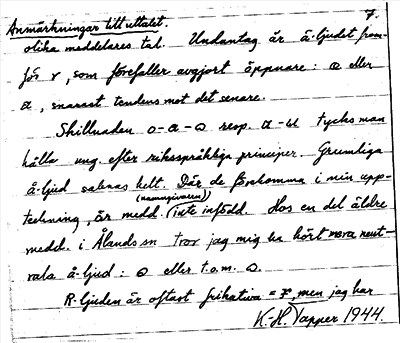 Anmärkningar till uttalet. 7.
olika meddelares tal. Undantag är ä-ljudet fram-
för r, som förefaller avgjort öppnare: æ eller
a, snarast tendens mot det senare.
Skillnaden o-a-ɷ resp. a-u tycks man
hålla ung. efter riksspråkliga principer. Grumliga
å-ljud saknas helt. Där de förekomma i min upp-
(namngivaren)
teckning, är medd. inte infödd. Hos en del äldre
medd. i Ålands sn tror jag mig ha hört mera neut-
rala ä-ljud: ə eller t.o.m. ə.
R-ljuden är oftast frikativa = r, men jag har
K-H. Tapper 1944.